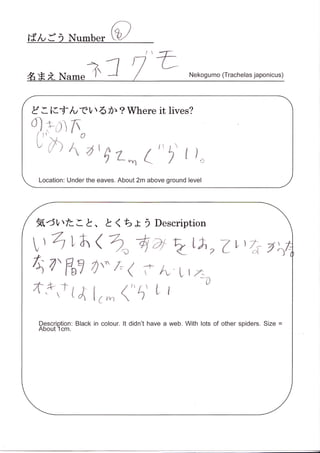 ばんごう Number ⑧
名まえ Name ネコグモ
Nekogumo (Trachelas japonicus)
どこにすんでいるか？Where it lives?
のきの下。
じめんから2mくらい。
Location: Under the eaves. About 2m above ground level
気づいたこと、とくちょう Description
いろはくろ。すみをはっていなかった。
なか間がたくさんいた。
大きさは1cmぐらい
Description: Black in colour. It didn't have a web. With lots of other spiders. Size =
About 1cm.